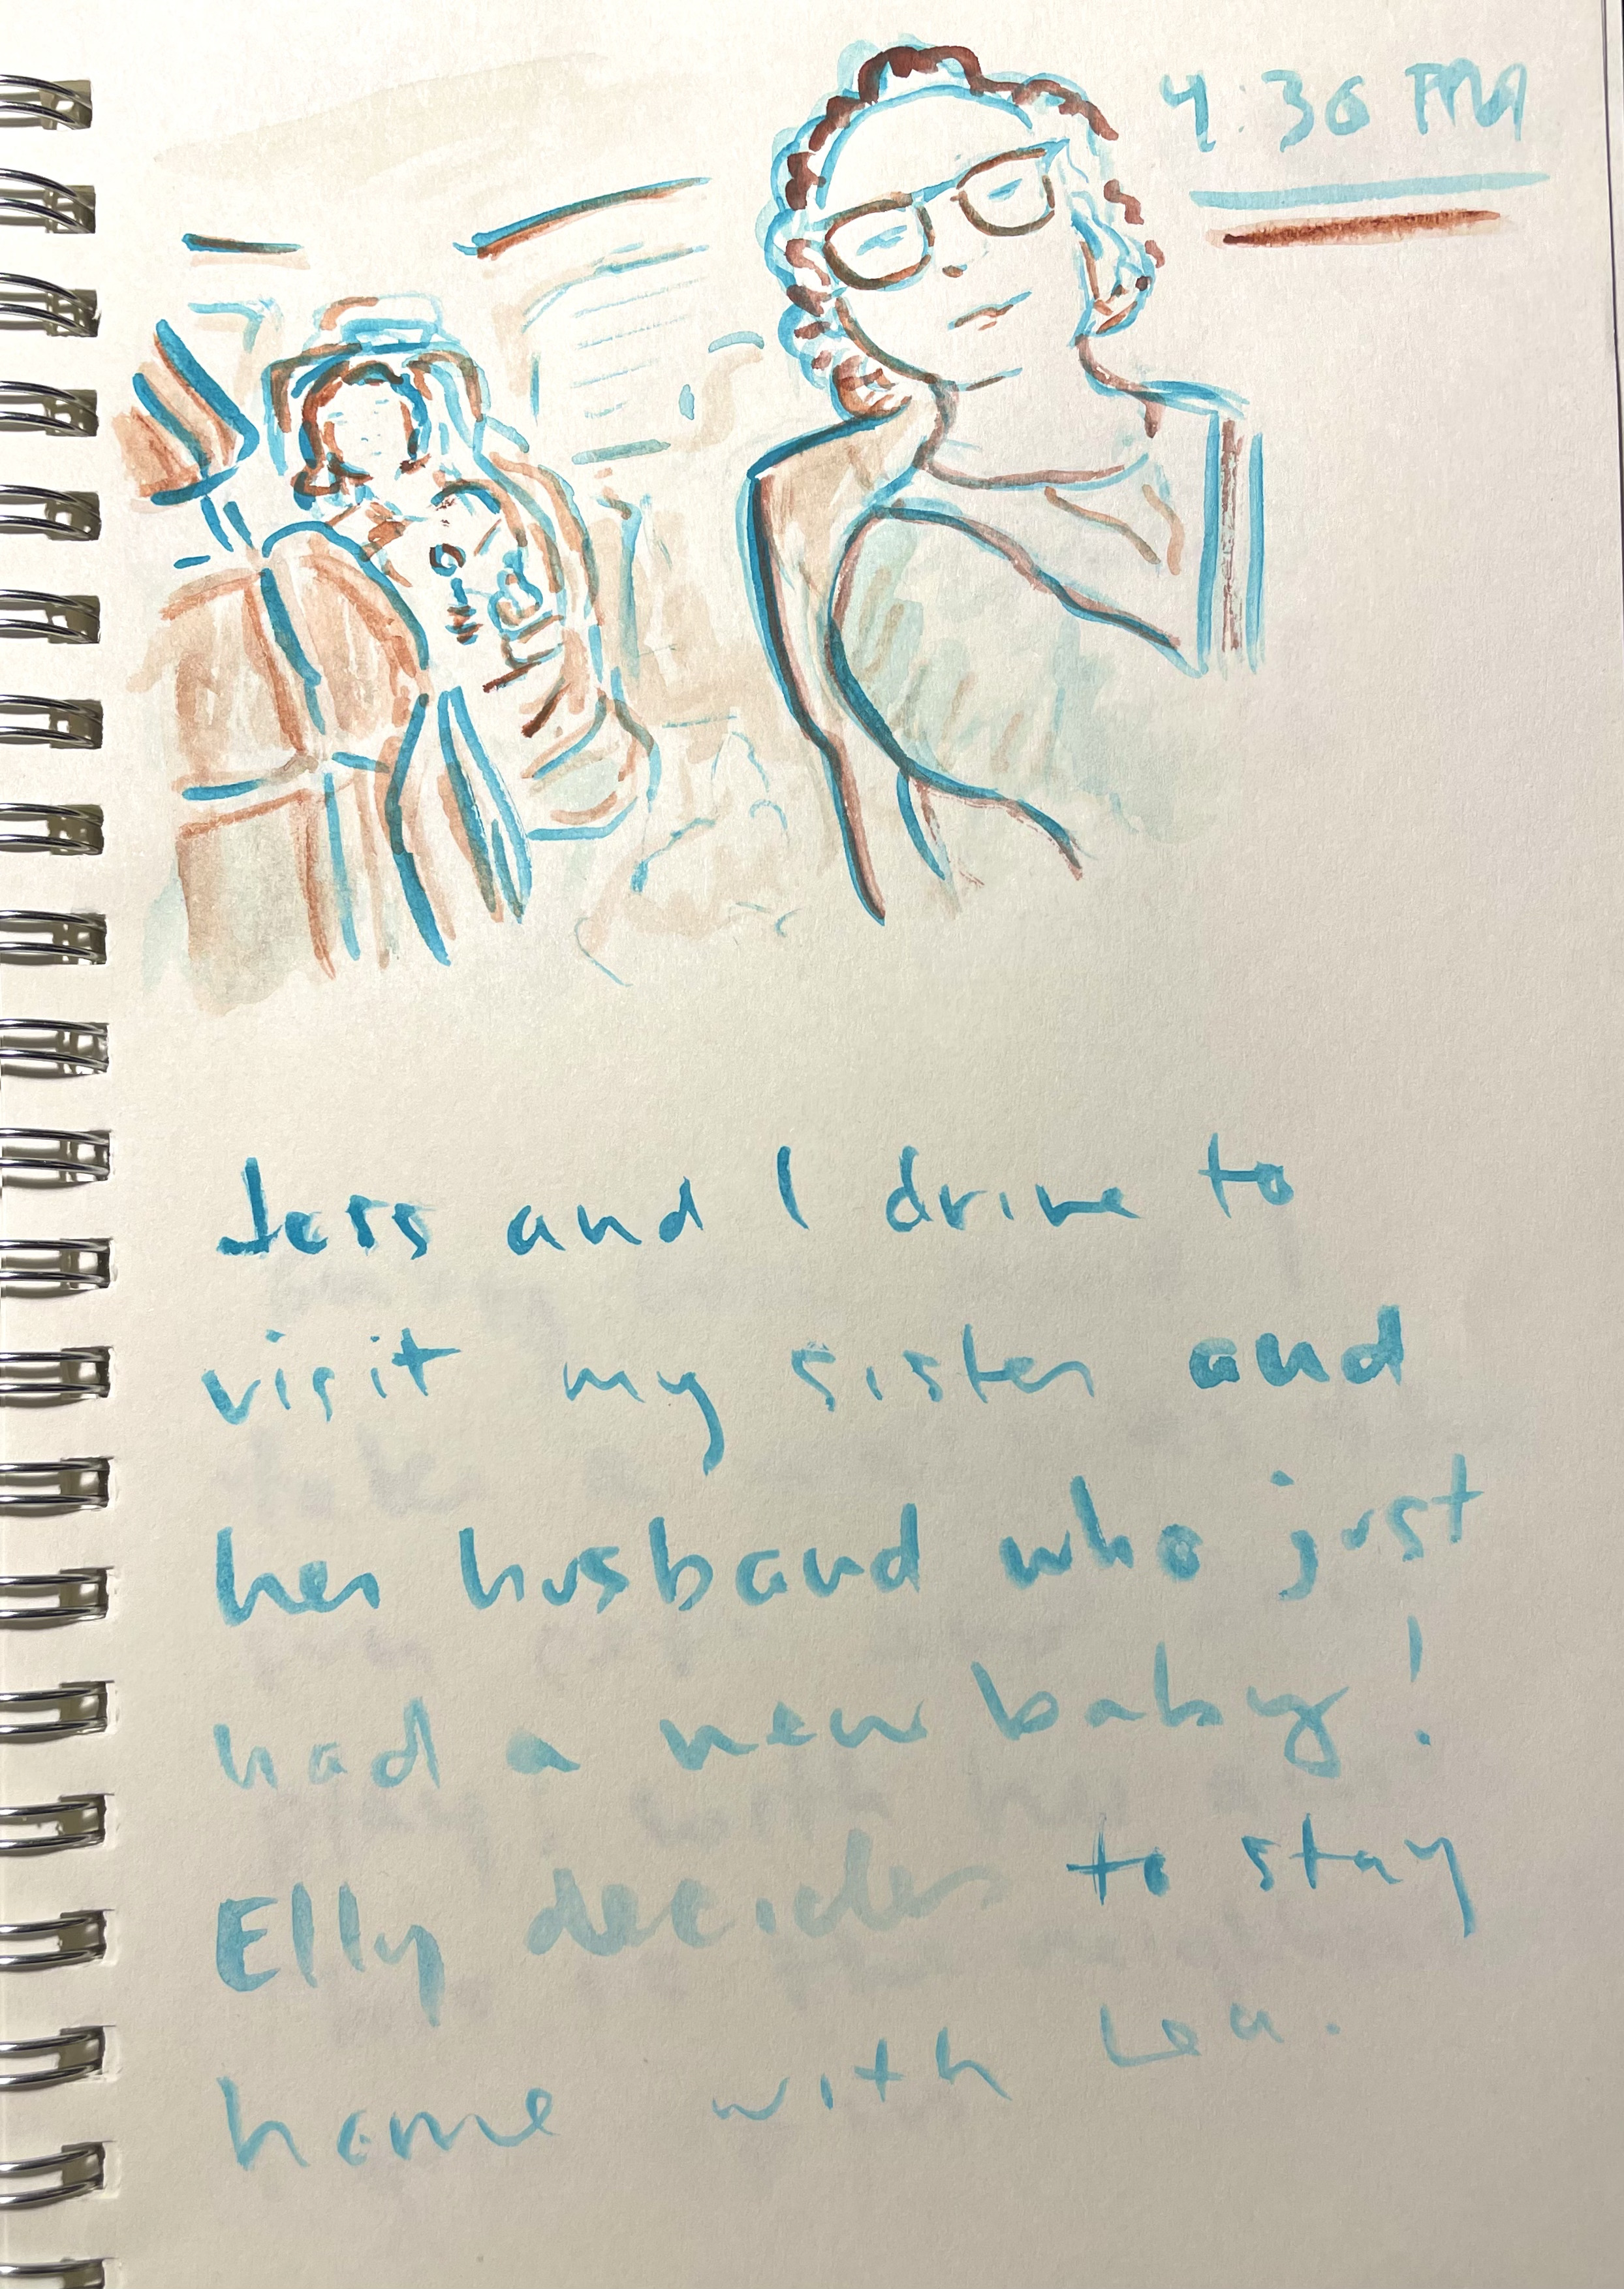 4:30 PM
Jess and I drive to
visit my sister and
her husband who just
had a new baby!
Elly decides to stay
home with Lea.